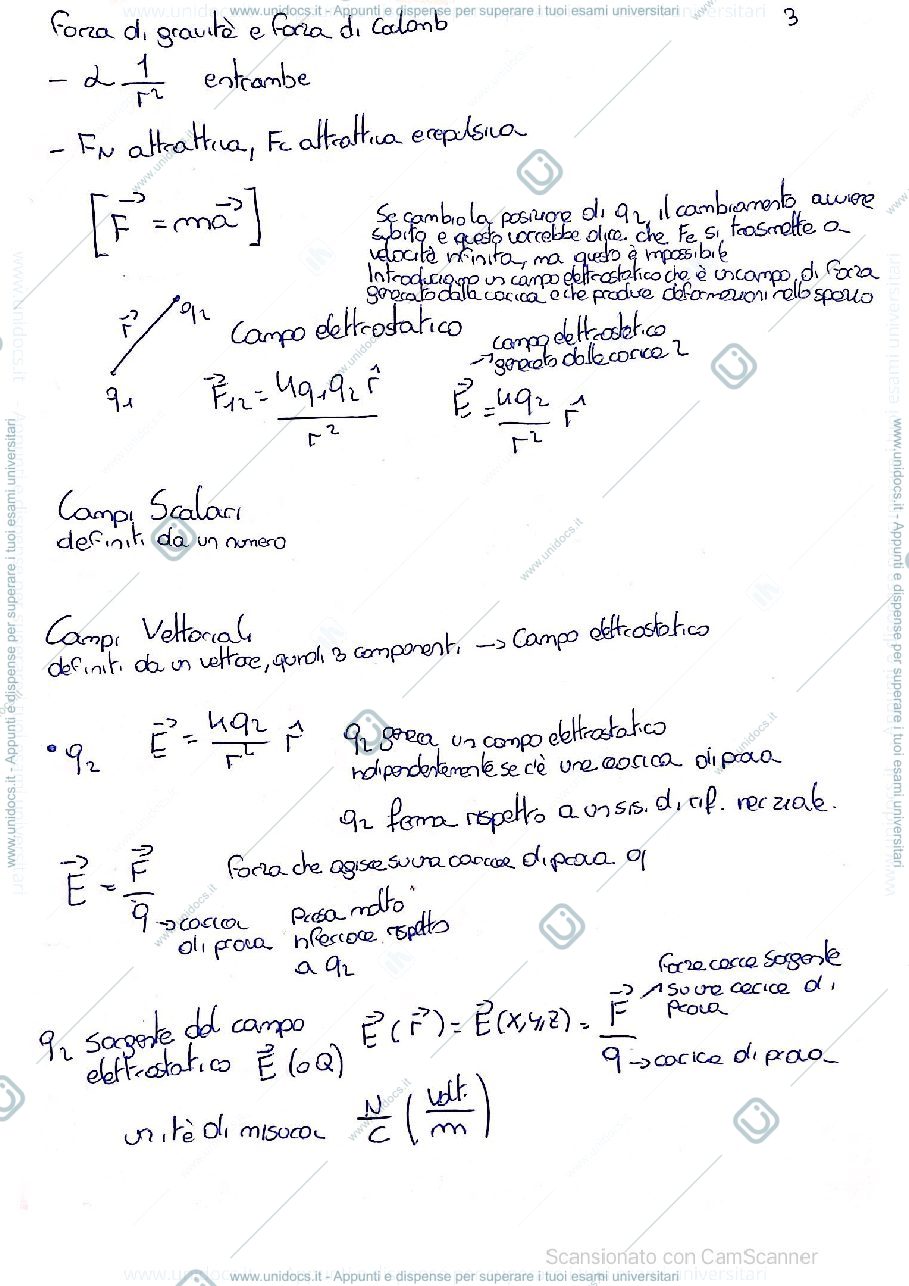 www.unidocs.it - Appunti e dispense per superare i tuoi esami universitari
3
Forza di gravità e forza di Colomb
- α 1/r² entrambe
- FN attrattiva, Fc attrattiva e repulsiva
[F⃗ = ma⃗]
Se cambio la posizione di q2, il cambiamento avviene
subito e questo vorrebbe dire che Fe si trasmette a
velocità infinita, ma questo è impossibile
Introduciamo un campo elettrostatico che è un campo di forza
generato dalla carica e che produce deformazioni nello spazio
r⃗ q2
q1
Campo elettrostatico
campo elettrostatico
→ generato dalla carica 2
F⃗12 = kq1q2 r̂ / r²
E⃗ = kq2/r² r̂
Campi Scalari
definiti da un numero
Campi Vettoriali
definiti da un vettore, quindi 3 componenti → Campo elettrostatico
• q2 E⃗ = kq2/r² r̂
q2 genera un campo elettrostatico
indipendentemente se c'è una carica di prova
q2 ferma rispetto a un sis. di rif. inerziale.
E⃗ = F⃗/q
Forza che agisce su una carica di prova q
→ carica di prova
Presa molto
inferiore rispetto
a q2
q2 sorgente del campo
elettrostatico E⃗ (o Q)
E⃗(r⃗) = E⃗(x,y,z) = F⃗/q
Forza carica sorgente
su una carica di
prova
→ carica di prova
unità di misura N/C (volt./m)
Scansionato con CamScanner
www.unidocs.it - Appunti e dispense per superare i tuoi esami universitari